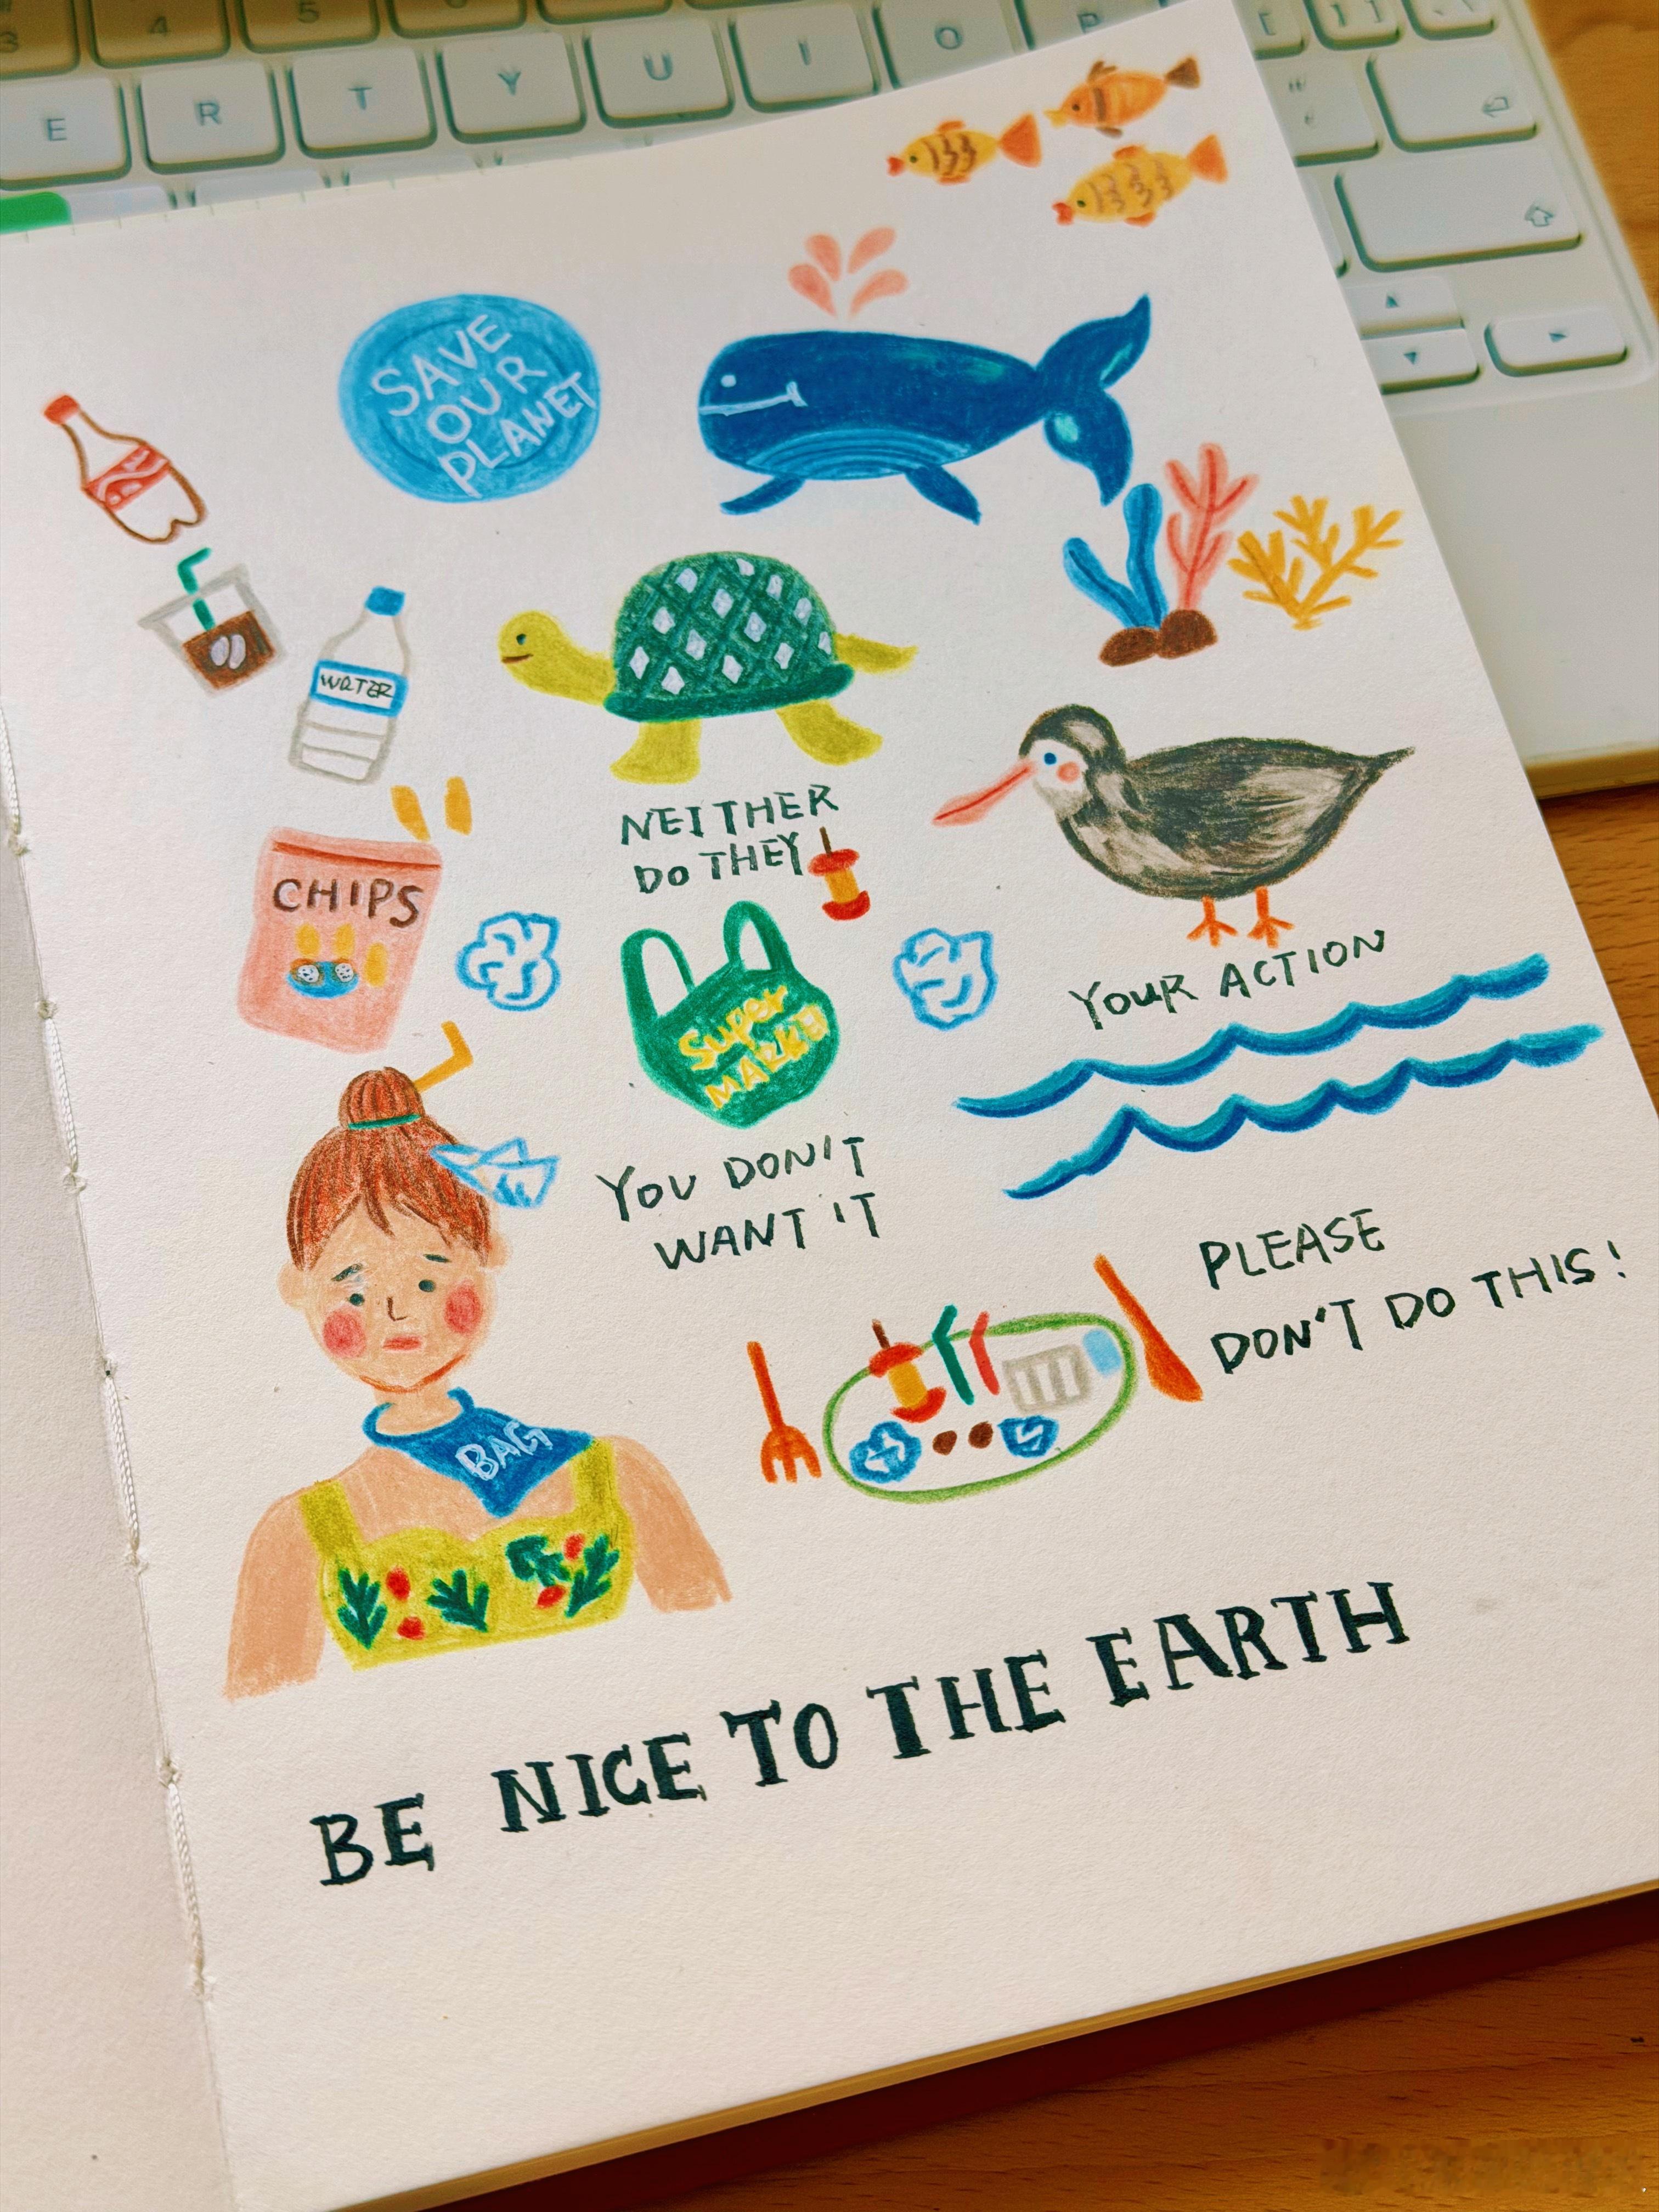 3
4
5
6
E
R
T
Y
U
I
O
P
SAVE
OUR
PLANET
WATER
NEITHER
DO THEY
CHIPS
Super
MARKET
YOUR ACTION
YOU DON'T
WANT IT
PLEASE
DON'T DO THIS!
BAG
BE NICE TO THE EARTH